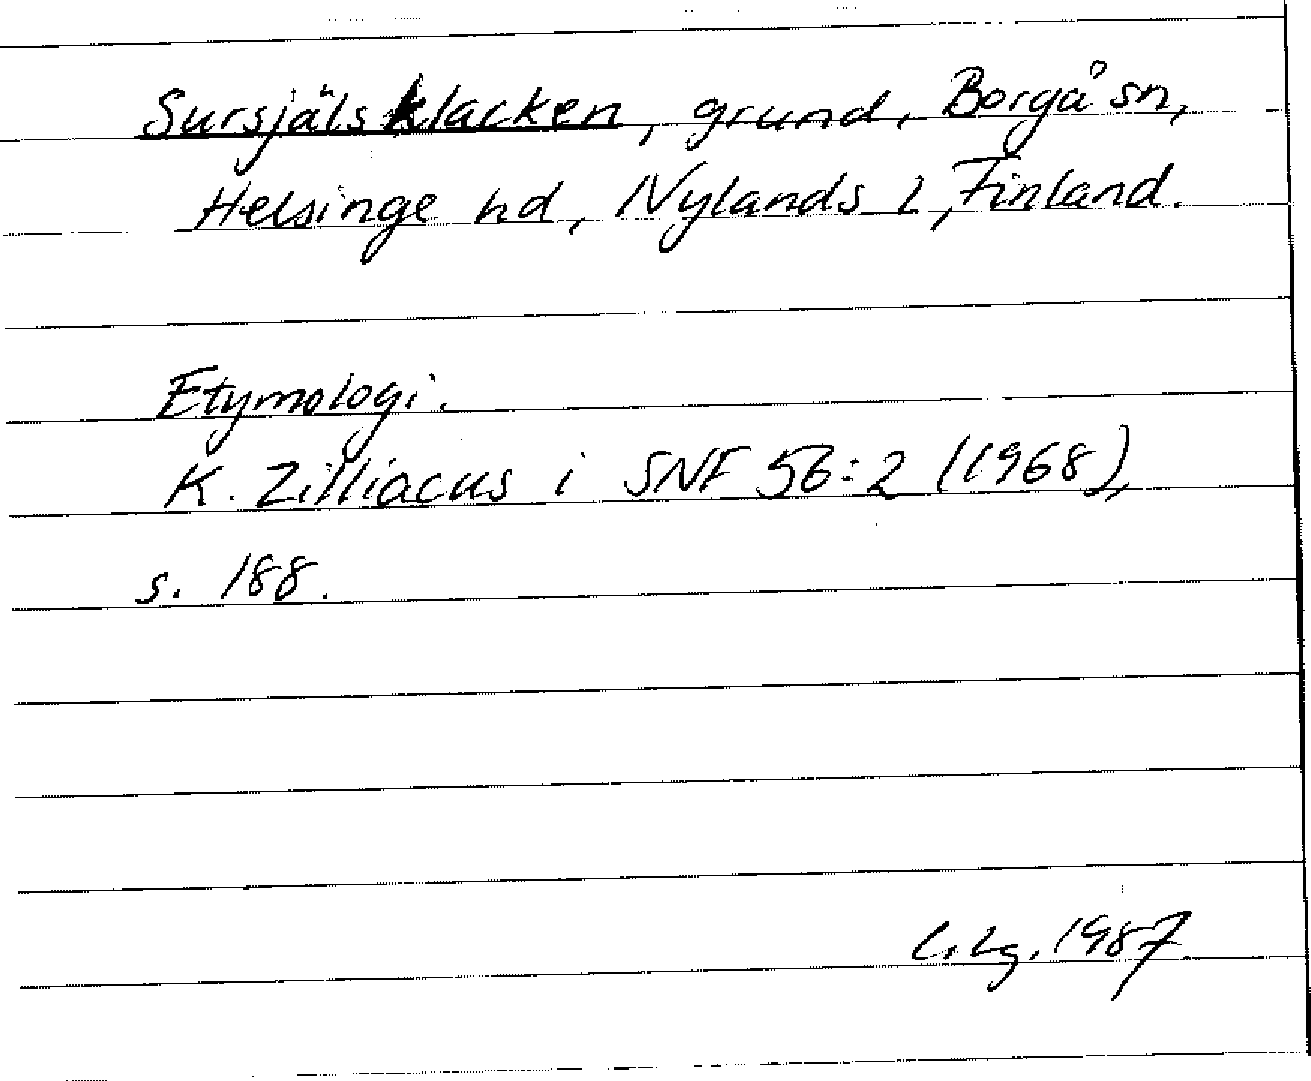 Sursjälsklacken, grund, Borgå sn,
Helsinge hd, Nylands l, Finland.
Etymologi.
K. Zilliacus i SNF 56:2 (1968),
s. 188.
C. Lg. 1987